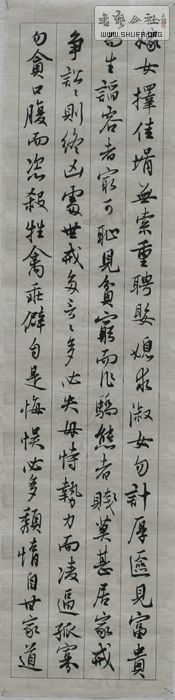 嫁女擇佳壻無索重聘娶媳求淑女勿計厚奩見富貴
而生諂容者最可恥見貧窮而作驕態者賤莫甚居家戒
爭訟訟則終凶處世戒多言言多必失毋恃勢力而凌逼孤寡
勿貪口腹而恣殺牲禽乖僻自是悔悮必多頹惰自甘家道
WWW.SHUFA.ORG